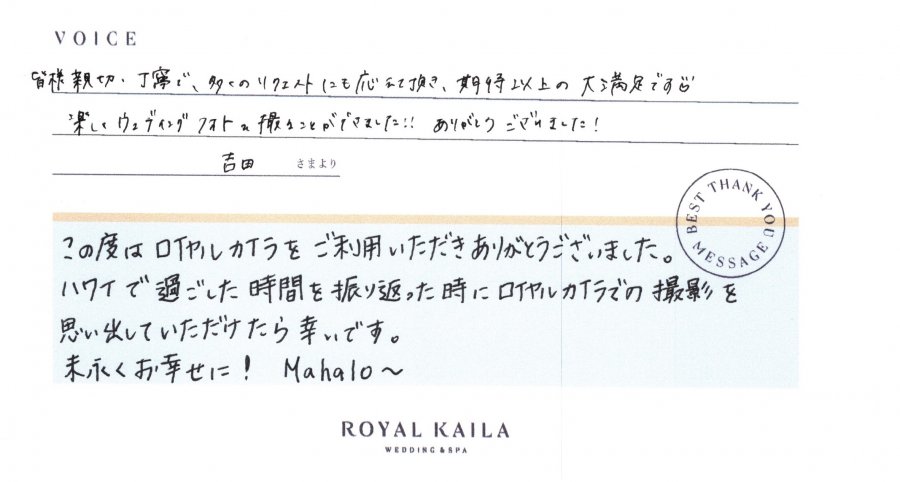 VOICE
皆様親切、丁寧で、多くのリクエストにも応えて頂き、期待以上の大満足です
楽しくウェディングフォトを撮ることができました!! ありがとうございました!
吉田 さまより
BEST THANK YOU MESSAGE
この度はロイヤルカイラをご利用いただきありがとうございました。
ハワイで過ごした時間を振り返った時にロイヤルカイラでの撮影を
思い出していただけたら幸いです。
末永くお幸せに! Mahalo〜
ROYAL KAILA
WEDDING & SPA